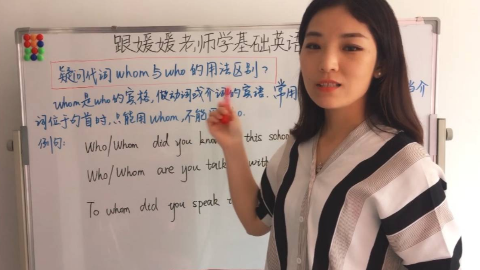 跟媛媛老师学基础英语
疑问代词whom与who的用法区别?
whom是who的宾格,做动词或介词的宾语.常用 当介
词位于句首时,只能用whom,不能 o.
例句: Who/Whom did you know this school
Who/Whom are you talk with
To whom did you speak